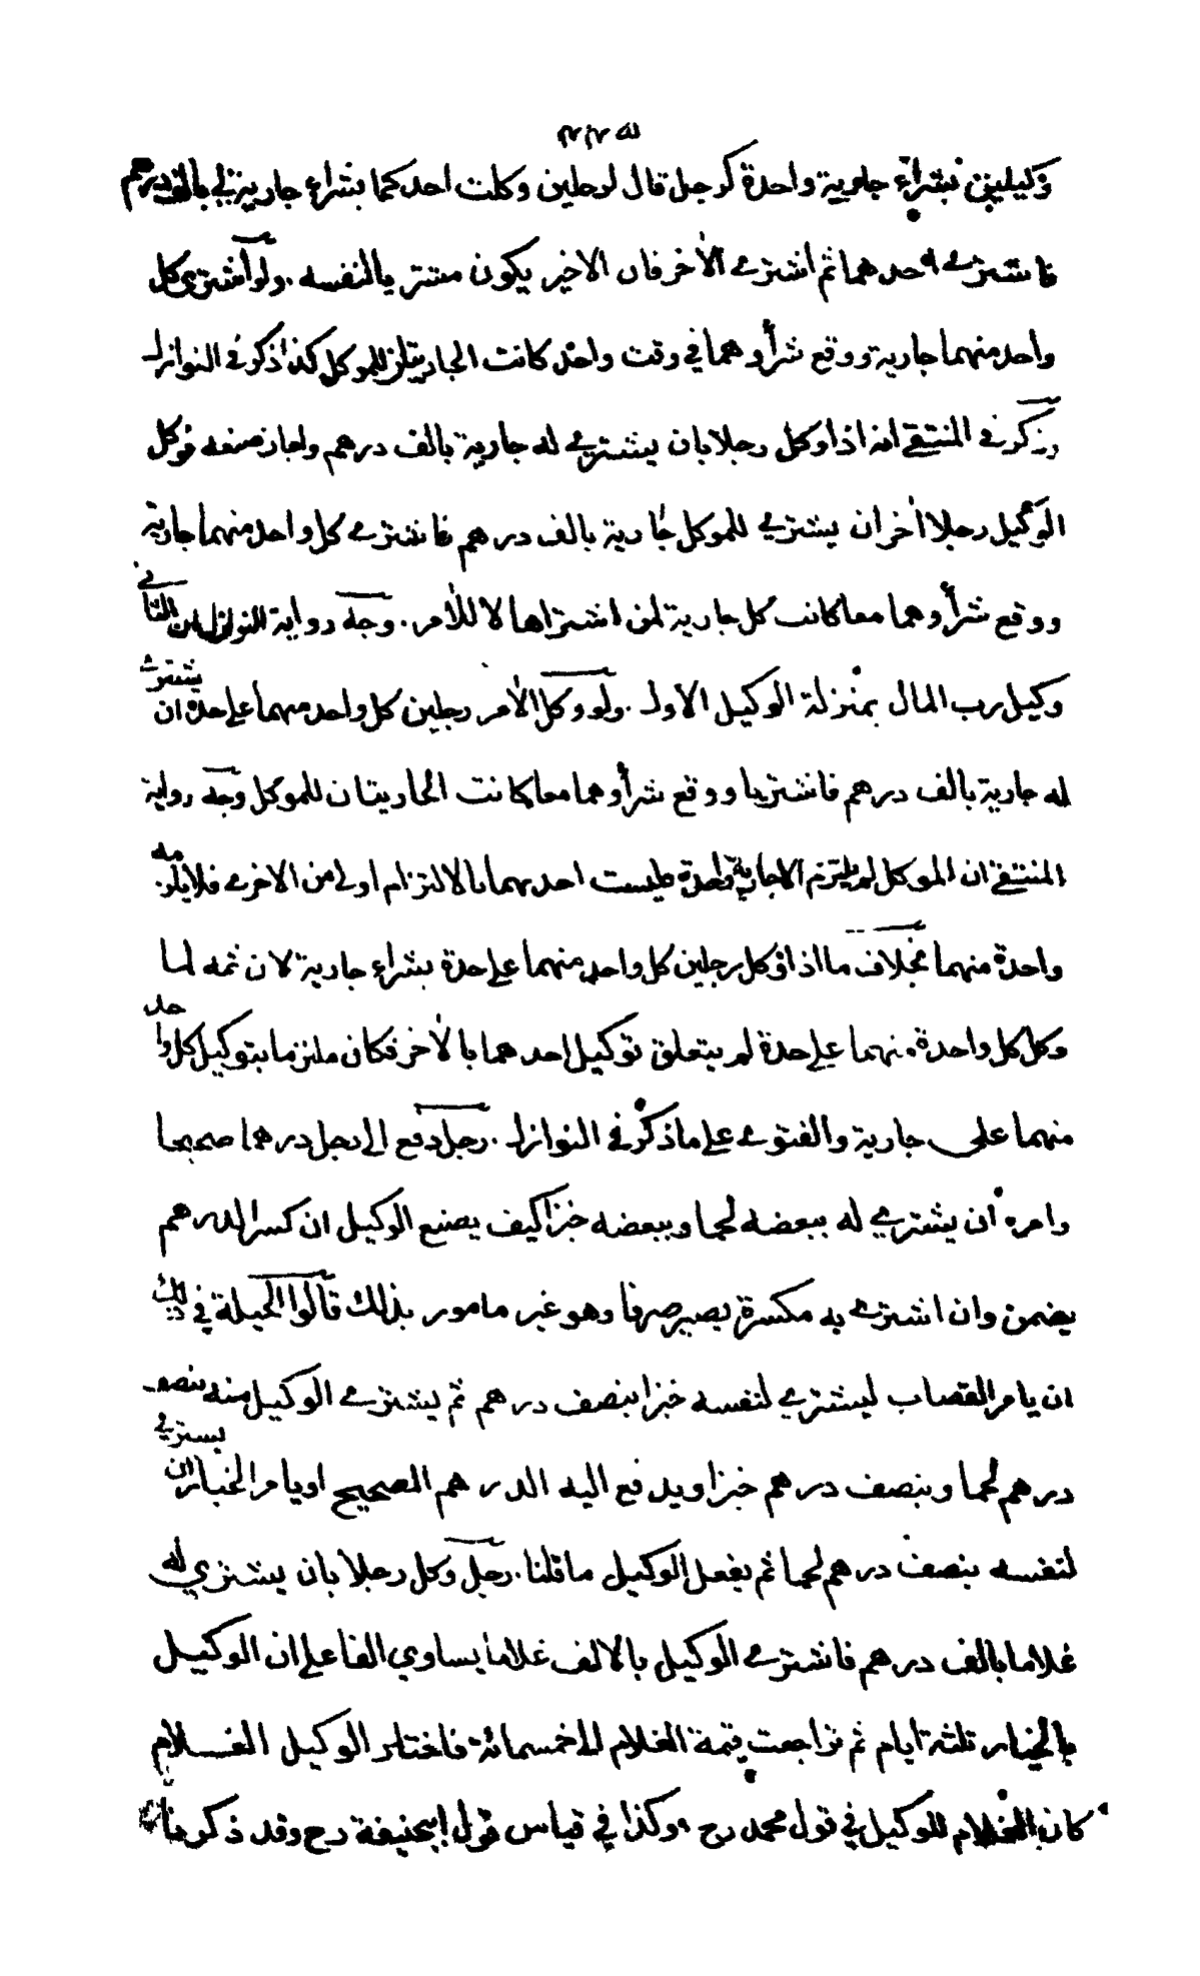 وكيلين بشراء جارية واحدة كرجل قال لرجلين وكلت احدكما بشراء جارية لي بالف درهم
فاشترى احدهما ثم اشترى الآخر فان الاخير يكون مشتريا لنفسه . ولو اشترى كل
واحد منهما جارية ووقع شرأوهما في وقت واحد كانت الجاريتان للموكل كذا ذكر في النوازل
وذكر في المنتقى انه اذا وكل رجلا بان يشتري له جارية بالف درهم واجاز صنعه فوكل
الوكيل رجلا اخر ان يشتري للموكل جارية بالف درهم فاشترى كل واحد منهما جارية
ووقع شرأوهما معا كانت كل جارية لمن اشتراها لا للآمر . وجه رواية النوازل ان الثاني
وكيل رب المال بمنزلة الوكيل الاول . ولو وكل الآمر رجلين كل واحد منهما على حدة ان يشتري
له جارية بالف درهم فاشتريا ووقع شرأوهما معا كانت الجاريتان للموكل وجه رواية
المنتقى ان الموكل لم يلتزم الا جارية واحدة وليست احديهما بالالتزام اولى من الاخرى فلا يلزمه
واحدة منهما بخلاف ما اذا وكل رجلين كل واحد منهما على حدة بشراء جارية لان ثمه لما
وكل كل واحدة منهما على حدة لم يتعلق توكيل احدهما بالآخر فكان ملتزما بتوكيل كل واحد
منهما على جارية والفتوى على ما ذكر في النوازل . رجل دفع الى رجل درهما صحيحا
وامره ان يشتري له ببعضه لحما وببعضه خبزا كيف يصنع الوكيل ان كسر الدرهم
يضمن وان اشترى به مكسرة يصير صرفا وهو غير مامور بذلك قالوا الحيلة في ذلك
ان يامر القصاب ليشتري لنفسه خبزا بنصف درهم ثم يشتري الوكيل منه بنصف
درهم لحما وبنصف درهم خبزا ويدفع اليه الدرهم الصحيح او يامر الخباز ان يشتري
لنفسه بنصف درهم لحما ثم يفعل الوكيل ما قلنا . رجل وكل رجلا بان يشتري له
غلاما بالف درهم فاشترى الوكيل بالالف غلاما يساوي الفا على ان الوكيل
بالخيار ثلثة ايام ثم تراجعت قيمة الغلام الى خمسمائة فاختار الوكيل الغلام
كان الغلام للوكيل في قول محمد رح وكذا في قياس قول ابيحنيفة رح وقد ذكرنا